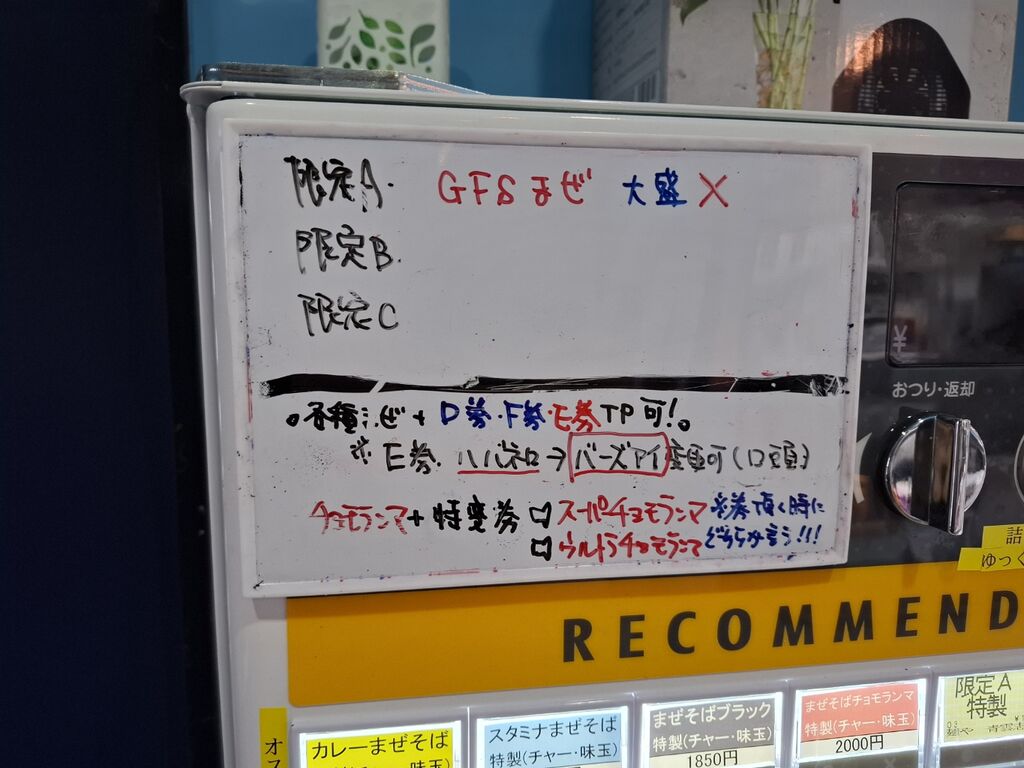 限定A. GFSまぜ 大盛 X
限定B.
限定C
。各種まぜ+D券・F券・E券TP可!。
※E券. ハバネロ→バーズアイ変更可(口頭)
チョモランマ+特変券 口 スーパーチョモランマ ※券頂く時に
口 ウルトラチョモランマ どちらか言う!!!
¥
おつり・返却
詰
ゆっく
RECOMMEND
オス
カレーまぜそば
スタミナまぜそば
特製(チャー・味玉)
まぜそばブラック
特製(チャー・味玉)
1850円
まぜそばチョモランマ
特製(チャー・味玉)
2000円
限定A
特製